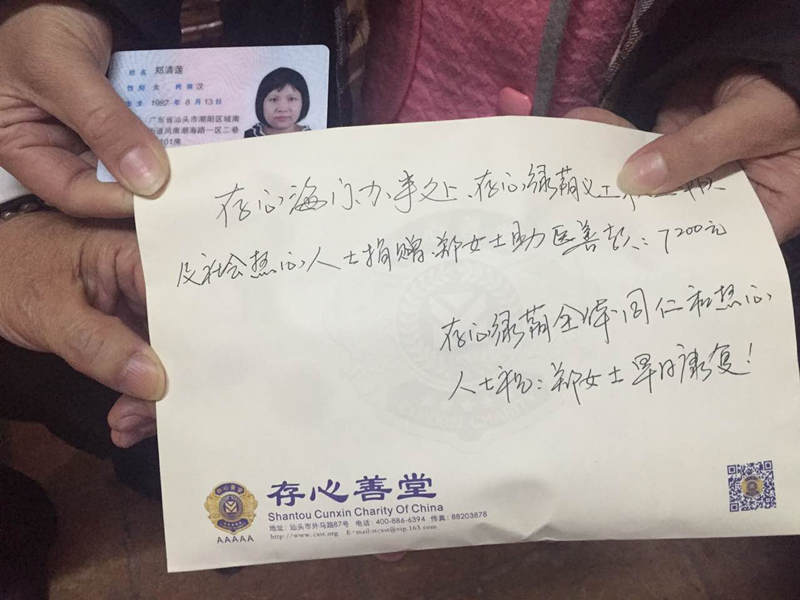 姓名 郑清莲
性别 女 民族 汉
出生 1987 年 8 月 13 日
广东省汕头市潮阳区城南
街道凤南潮海路一区二巷
01房
存心海门办事处、存心绿萌义工
及社会热心人士捐赠郑女士助医善款:7200元
存心绿萌全体同仁和热心
人士祝:郑女士早日康复!
存心善堂
Shantou Cunxin Charity Of China
地址:汕头市外马路87号 电话:400-886-6394 传真:88203878
http://www.cxst.org E-mail:stcxst@vip.163.com
AAAAA